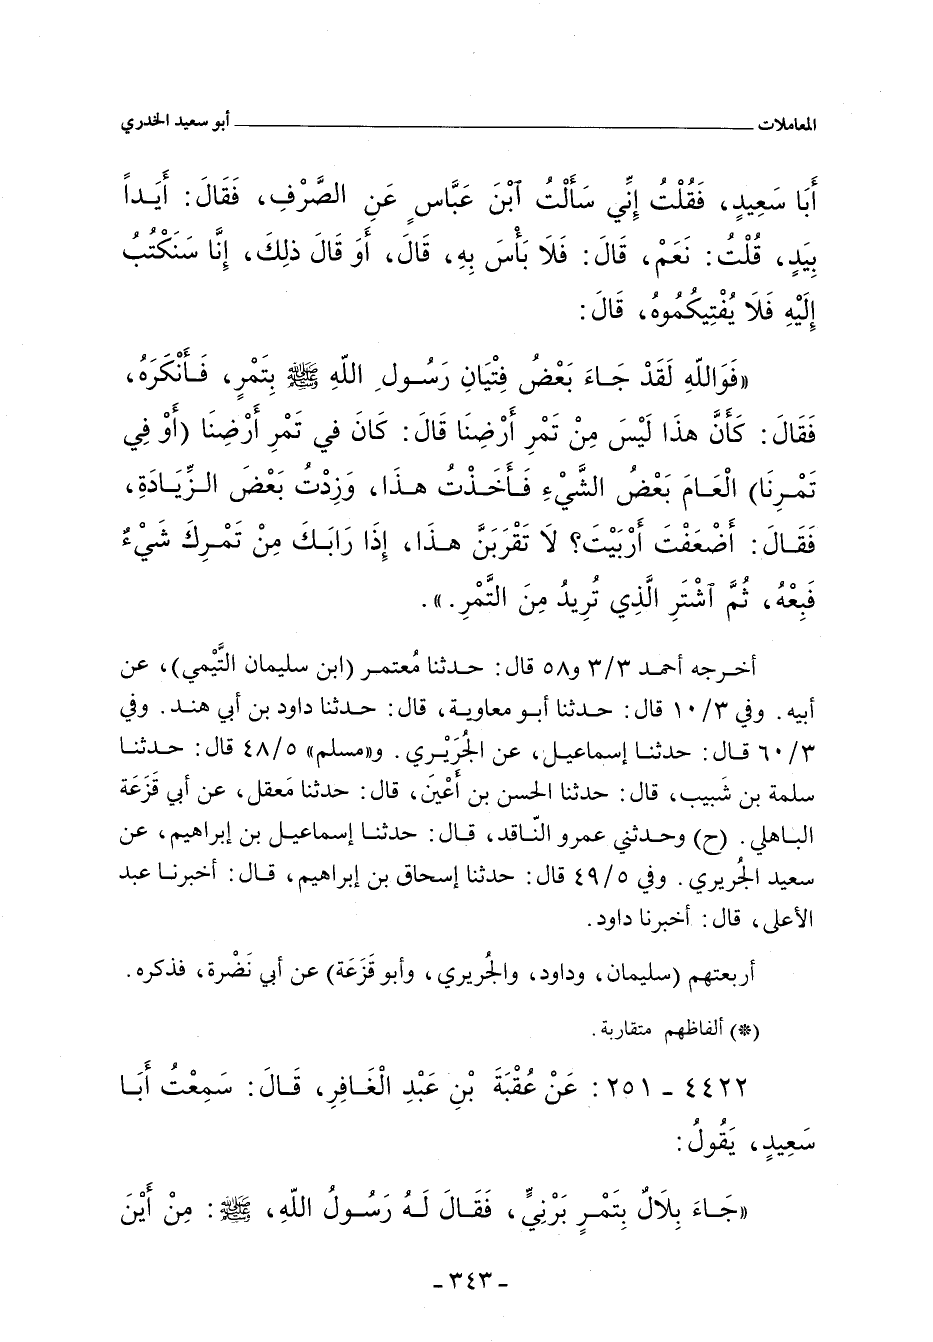 المعاملات ــــــــــــــــــــــــــــــــــــــــ أبو سعيد الخدري
أَبَا سَعِيدٍ، فَقُلْتُ إِنِّي سَأَلْتُ ٱبْنَ عَبَّاسٍ عَنِ الصَّرْفِ، فَقَالَ: أَيَداً
بِيَدٍ، قُلْتُ: نَعَمْ، قَالَ: فَلَا بَأْسَ بِهِ، قَالَ، أَوَ قَالَ ذلِكَ، إِنَّا سَنَكْتُبُ
إِلَيْهِ فَلَا يُفْتِيكُمُوهُ، قَالَ:
«فَوَاللّهِ لَقَدْ جَاءَ بَعْضُ فِتْيَانِ رَسُولِ اللّهِ ﷺ بِتَمْرٍ، فَأَنْكَرَهُ،
فَقَالَ: كَأَنَّ هذَا لَيْسَ مِنْ تَمْرِ أَرْضِنَا قَالَ: كَانَ في تَمْرِ أَرْضِنَا (أَوْ فِي
تَمْرِنَا) الْعَامَ بَعْضُ الشَّيْءِ فَأَخَذْتُ هذَا، وَزِدْتُ بَعْضَ الزِّيَادَةِ،
فَقَالَ: أَضْعَفْتَ أَرْبَيْتَ؟ لَا تَقْرَبَنَّ هذَا، إِذَا رَابَكَ مِنْ تَمْرِكَ شَيْءٌ
فَبِعْهُ، ثُمَّ ٱشْتَرِ الَّذِي تُرِيدُ مِنَ التَّمْرِ.».
أخرجه أحمد ٣/٣ و٥٨ قال: حدثنا مُعتمر (ابن سليمان التَّيْمي)، عن
أبيه. وفي ١٠/٣ قال: حدثنا أبو معاوية، قال: حدثنا داود بن أبي هند. وفي
٦٠/٣ قال: حدثنا إسماعيل، عن الجُرَيْري. و«مسلم» ٤٨/٥ قال: حدثنا
سلمة بن شَبيب، قال: حدثنا الحسن بن أَعْيَنَ، قال: حدثنا مَعقل، عن أبي قَزَعَة
الباهلي. (ح) وحدثني عمرو النّاقد، قال: حدثنا إسماعيل بن إبراهيم، عن
سعيد الجُريري. وفي ٤٩/٥ قال: حدثنا إسحاق بن إبراهيم، قال: أخبرنا عبد
الأعلى، قال: أخبرنا داود.
أربعتهم (سليمان، وداود، والجُريري، وأبو قَزَعَة) عن أبي نَضْرة، فذكره.
(*) ألفاظهم متقاربة.
٤٤٢٢ - ٢٥١: عَنْ عُقْبَةَ بْنِ عَبْدِ الْغَافِرِ، قَالَ: سَمِعْتُ أَبَا
سَعِيدٍ، يَقُولُ:
«جَاءَ بِلَالٌ بِتَمْرٍ بَرْنِيٍّ، فَقَالَ لَهُ رَسُولُ اللّهِ، ﷺ: مِنْ أَيْنَ
- ٣٤٣ -